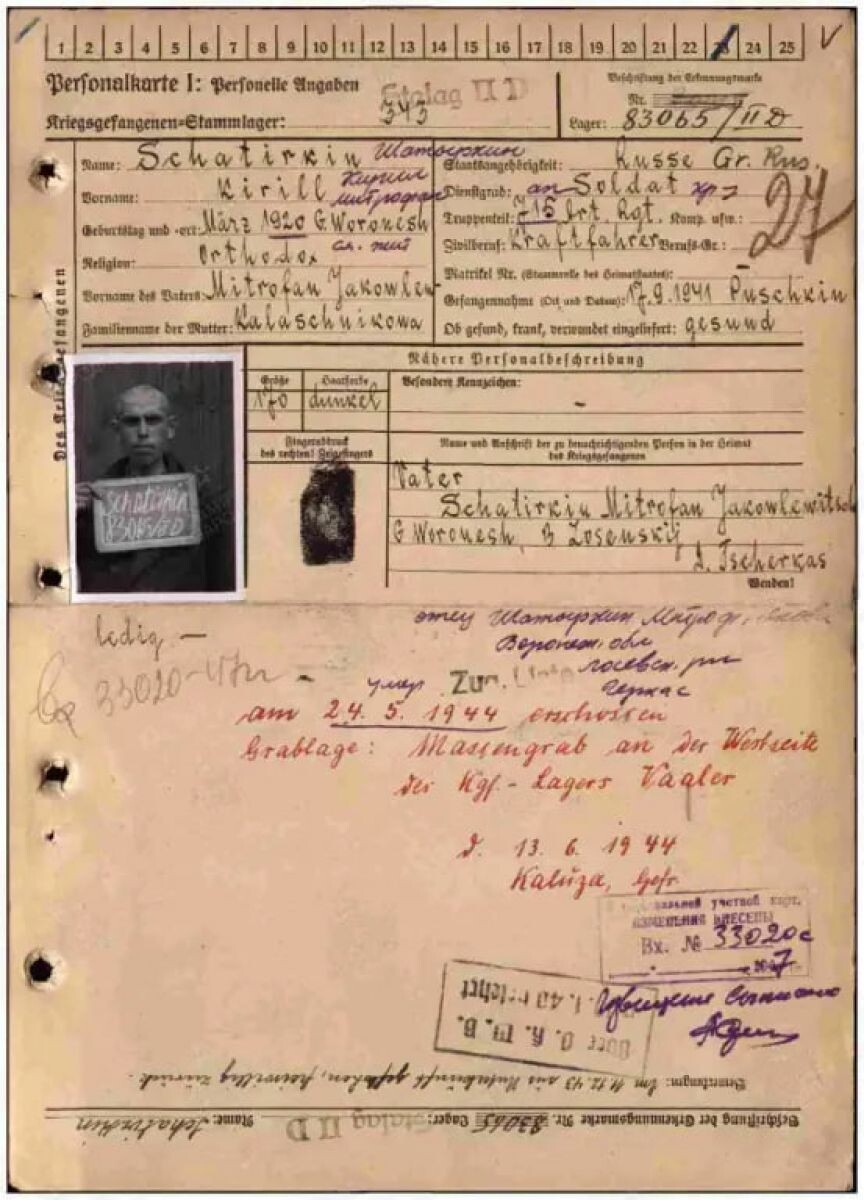 1 2 3 4 5 6 7 8 9 10 11 12 13 14 15 16 17 18 19 20 21 22 23 24 25
Personalkarte I: Personelle Angaben
Stalag II D
Kriegsgefangenen-Stammlager: 345
Beschriftung der Erkennungsmarke
Nr.
Lager: 83065/II D
Des Kriegsgefangenen
Name: Schatirkin Шатыркин
Vorname: Kirill Кирил
митрофан
Geburtstag und -ort: März 1920 G. Woronesh
Religion: Orthodox
Vorname des Vaters: Mitrofan Jakowlew
Familienname der Mutter: Kalaschnikowa
Staatsangehörigkeit: Russe Gr. Rus.
Dienstgrad: Soldat
Truppenteil: 15 Art. Rgt. Komp. usw.:
Zivilberuf: Kraftfahrer Berufs-Gr.:
27
Matrikel Nr. (Stammrolle des Heimatstaates):
Gefangennahme (Ort und Datum): 17.9.1941 Puschkin
Ob gesund, krank, verwundet eingeliefert: gesund
Nähere Personalbeschreibung
Größe Haarfarbe Besondere Kennzeichen:
170 dunkel -
Fingerabdruck
des rechten! Zeigefingers
Name und Anschrift der zu benachrichtigenden Person in der Heimat
des Kriegsgefangenen
Schatirkin
Vater
Schatirkin Mitrofan Jakowlewitsch
G Woronesh, B Losenskij
D. Tscherkas
Wenden!
ledig —
отец Шатыркин Митроф.
Воронеж. обл
лосевск. рн
Черкас
33020
умер
am 24. 5. 1944 erschossen
Grablage: Massengrab an der Westseite
des Kgf.-Lagers Vaaler
d. 13. 6. 1944
Kaluza, Gefr.
учетной карт.
ИЗМЕНЕНИЯ ВНЕСЕНЫ
Вх. № 33020с
Извещение
O. K. W. B.
Bemerkungen: Am 11.12.43 aus geflohen, freiwillig zurück.
Beschriftung der Erkennungsmarke Nr. 83065 Lager: Stalag II D Name: Schatirkin